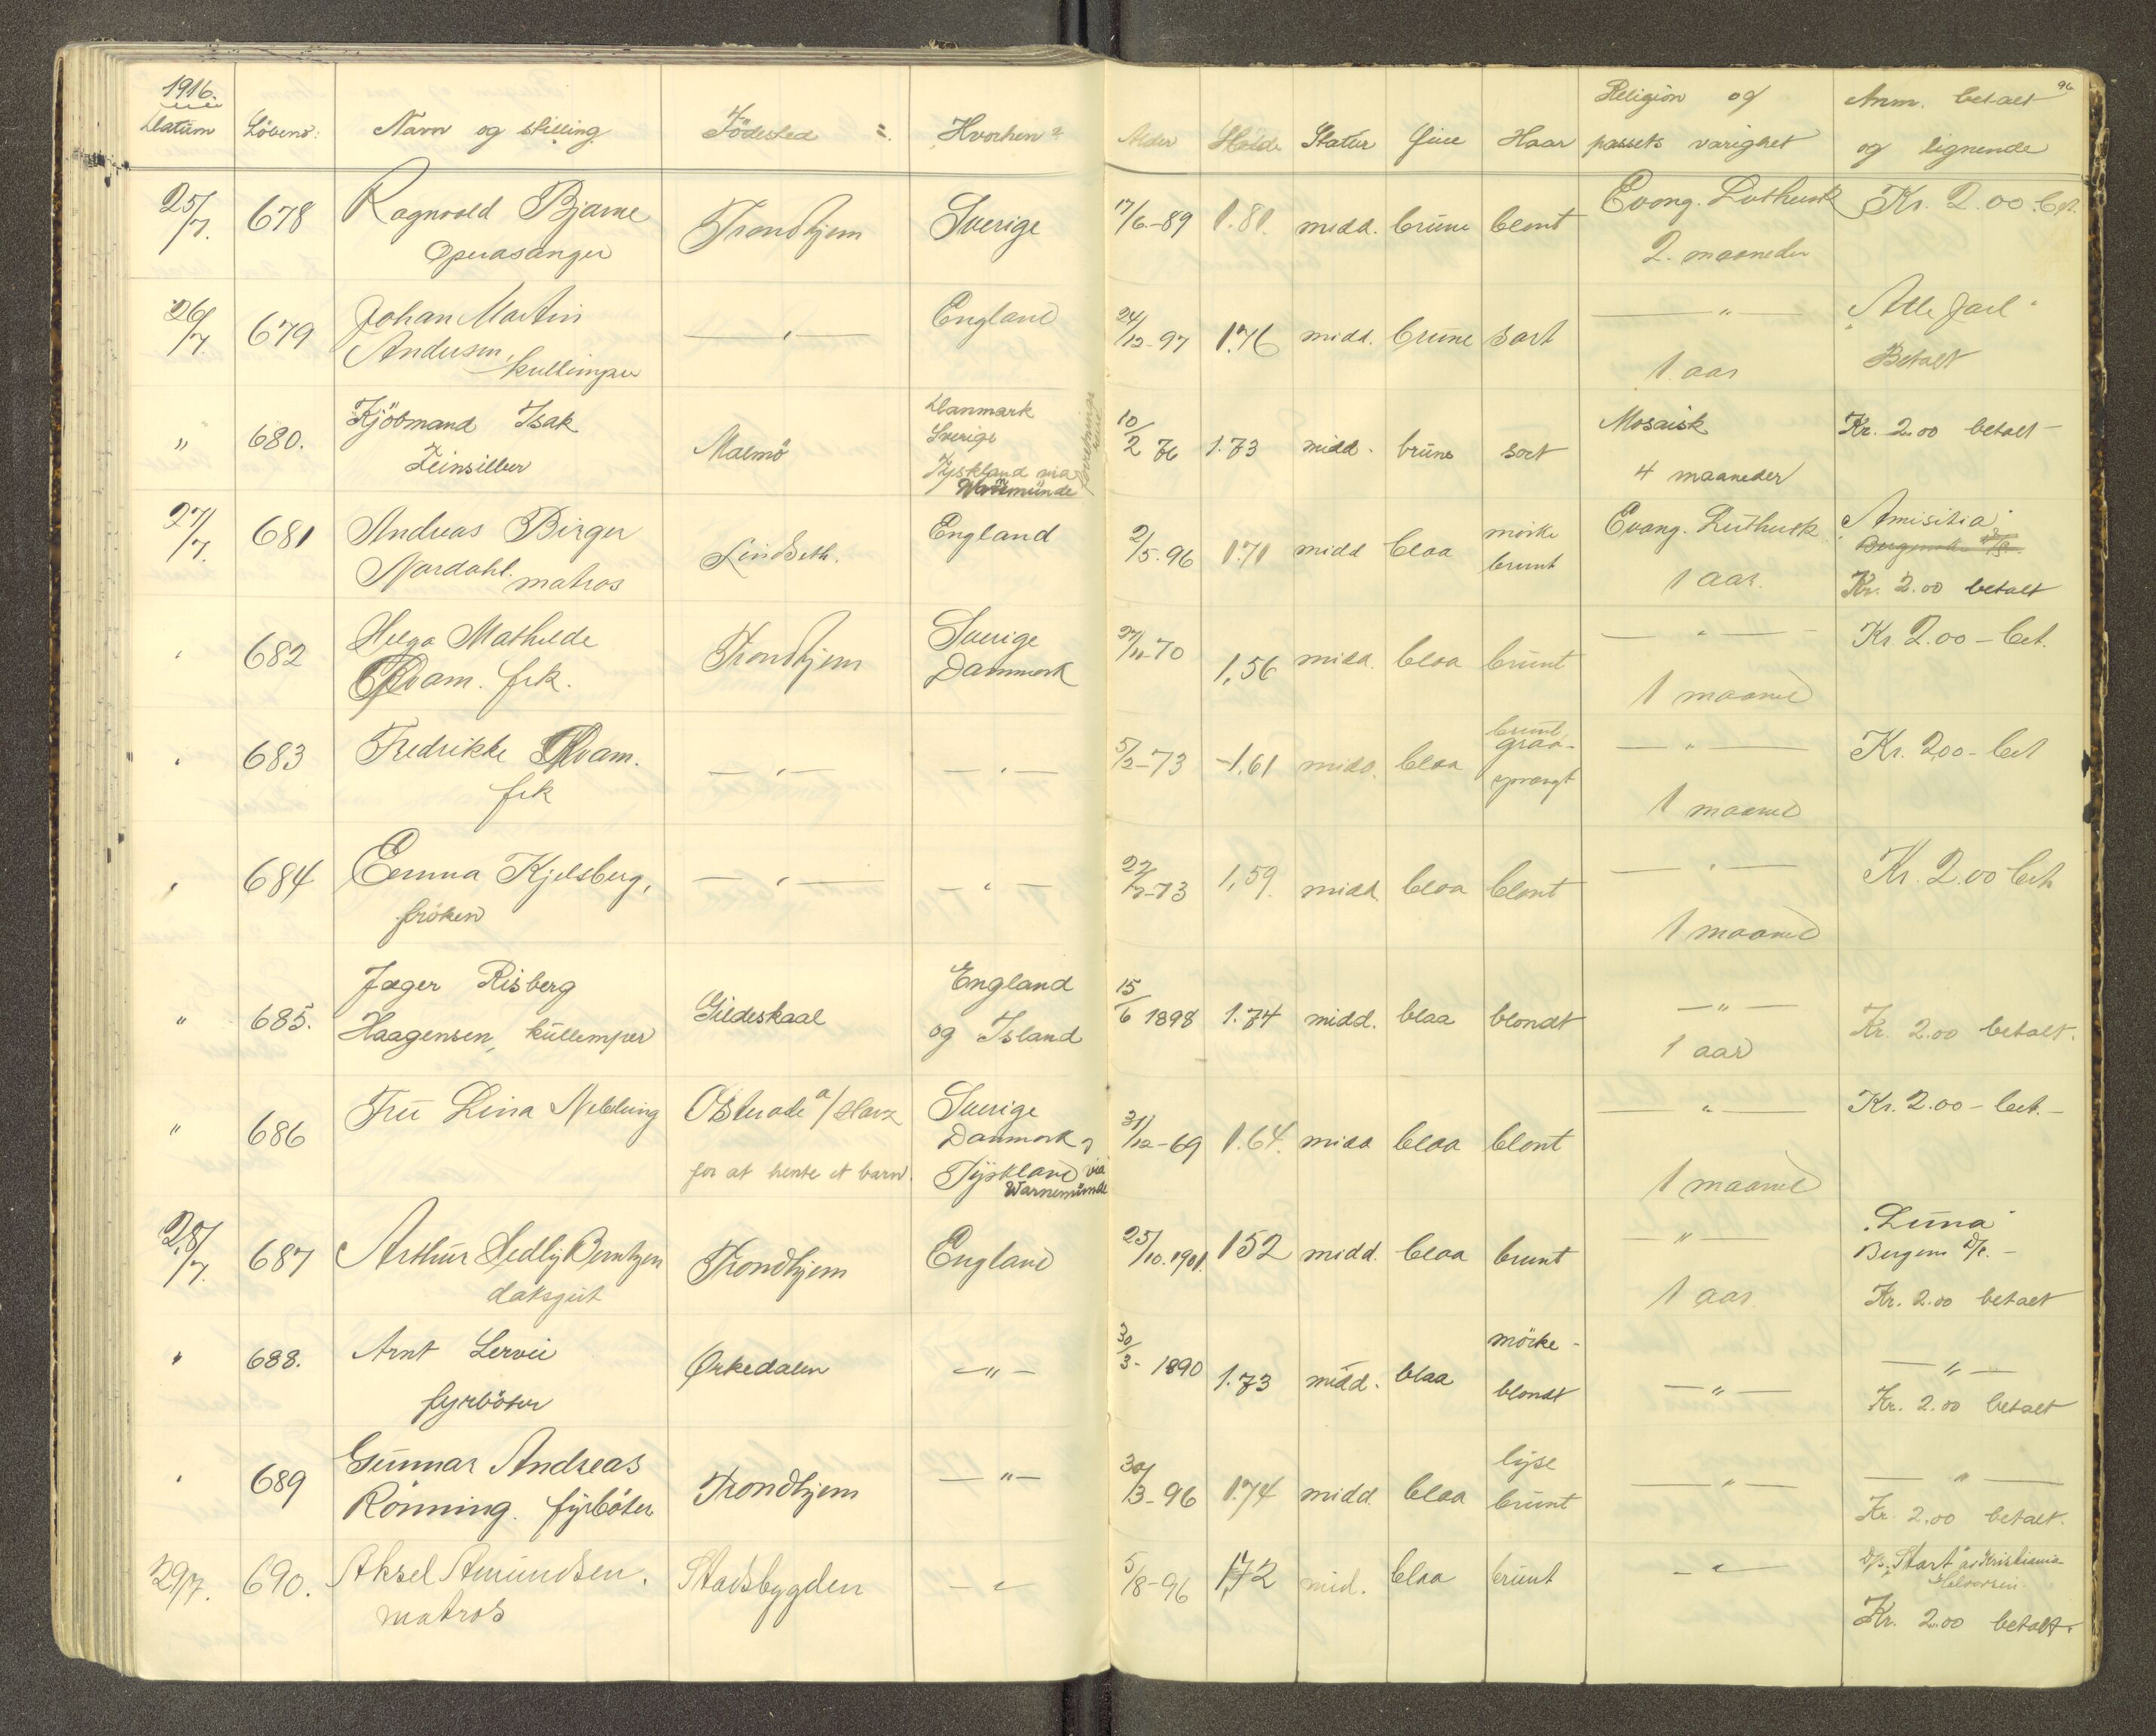 1916.
Datum Löbeno: Navn og stilling. Födested Hvorhen? Alder Höide Statur Öine Haar Religion og passets varighet Anm. betalt og lignende 96
25/7. 678 Ragnvald Bjarne Trondhjem Sverige 17/6-89 1.81. midd. brune blont Evang. Luthersk Kr. 2.00 bet.
Operasanger 2. maaneder
26/7. 679 Johan Martin —"— England 24/12-97 1.76 midd. brune sort —"— "Atle Jarl"
Andersen, kullemper 1 aar Betalt
" 680. Kjöbmand Isak Malmö Danmark 10/2 76 1.73 midd. brune sort Mosaisk Kr. 2.00 betalt
Sverige
Tyskland via 4 maaneder
Warnemünde
27/7. 681 Andreas Birger Lindseth. England 2/5.96 1.71 midd blaa mörke brunt Evang. Luthersk "Amisitia"
Nordahl. matros 1 aar. Kr. 2.00 betalt
" 682 Helga Mathilde Trondhjem Sverige 27/11-70 1,56 midd. blaa brunt —"— Kr. 2.00 - bet.
Kvam. frk. Danmark 1 maaned
" 683 Fredrikke Kvam. —"— —"— 5/2-73 1,61 midd. blaa brunt graa- sprængt —"— Kr. 2,00 - bet
frk 1 maaned
" 684 Emma Kjelsberg, —"— —"— 22/7-73 1,59. midd. blaa blont —"— Kr. 2.00 bet.
fröken 1 maaned
" 685. Jæger Risberg Gildeskaal England 15/6 1898 1.74 midd. blaa blondt —"— Kr. 2.00 betalt.
Haagensen, kullemper og Island 1 aar
" 686 Fru Lina Nebelung Osterode a/Harz Sverige 31/12-69 1.64. midd blaa blont —"— Kr. 2.00 - bet. -
Danmark,
for at hente et barn. Tyskland via 1 maaned
Warnemünde
28/7. 687 Arthur Hedly Berntzen Trondhjem England 25/10.1901. 152 midd. blaa brunt —"— "Luna"
Bergens D/s. -
daksgut 1 aar. Kr. 2.00 betalt
" 688. Arnt Lervik Ørkedalen —"— 30/3- 1890 1.73 midd. blaa mörke- blondt —"— —"—
fyrböter Kr. 2.00 betalt
" 689 Gunnar Andreas Trondhjem —"— 30/3-96 1.74 midd. blaa lyse brunt —"— —"—
Rönning. fyrböter Kr. 2,00 betalt.
29/7. 690. Aksel Amundsen. Stadsbygden —"— 5/8-96 1,72 mid. blaa brunt —"— D/s. "Start" av Kristiania
matros Kr. 2.00 betalt.